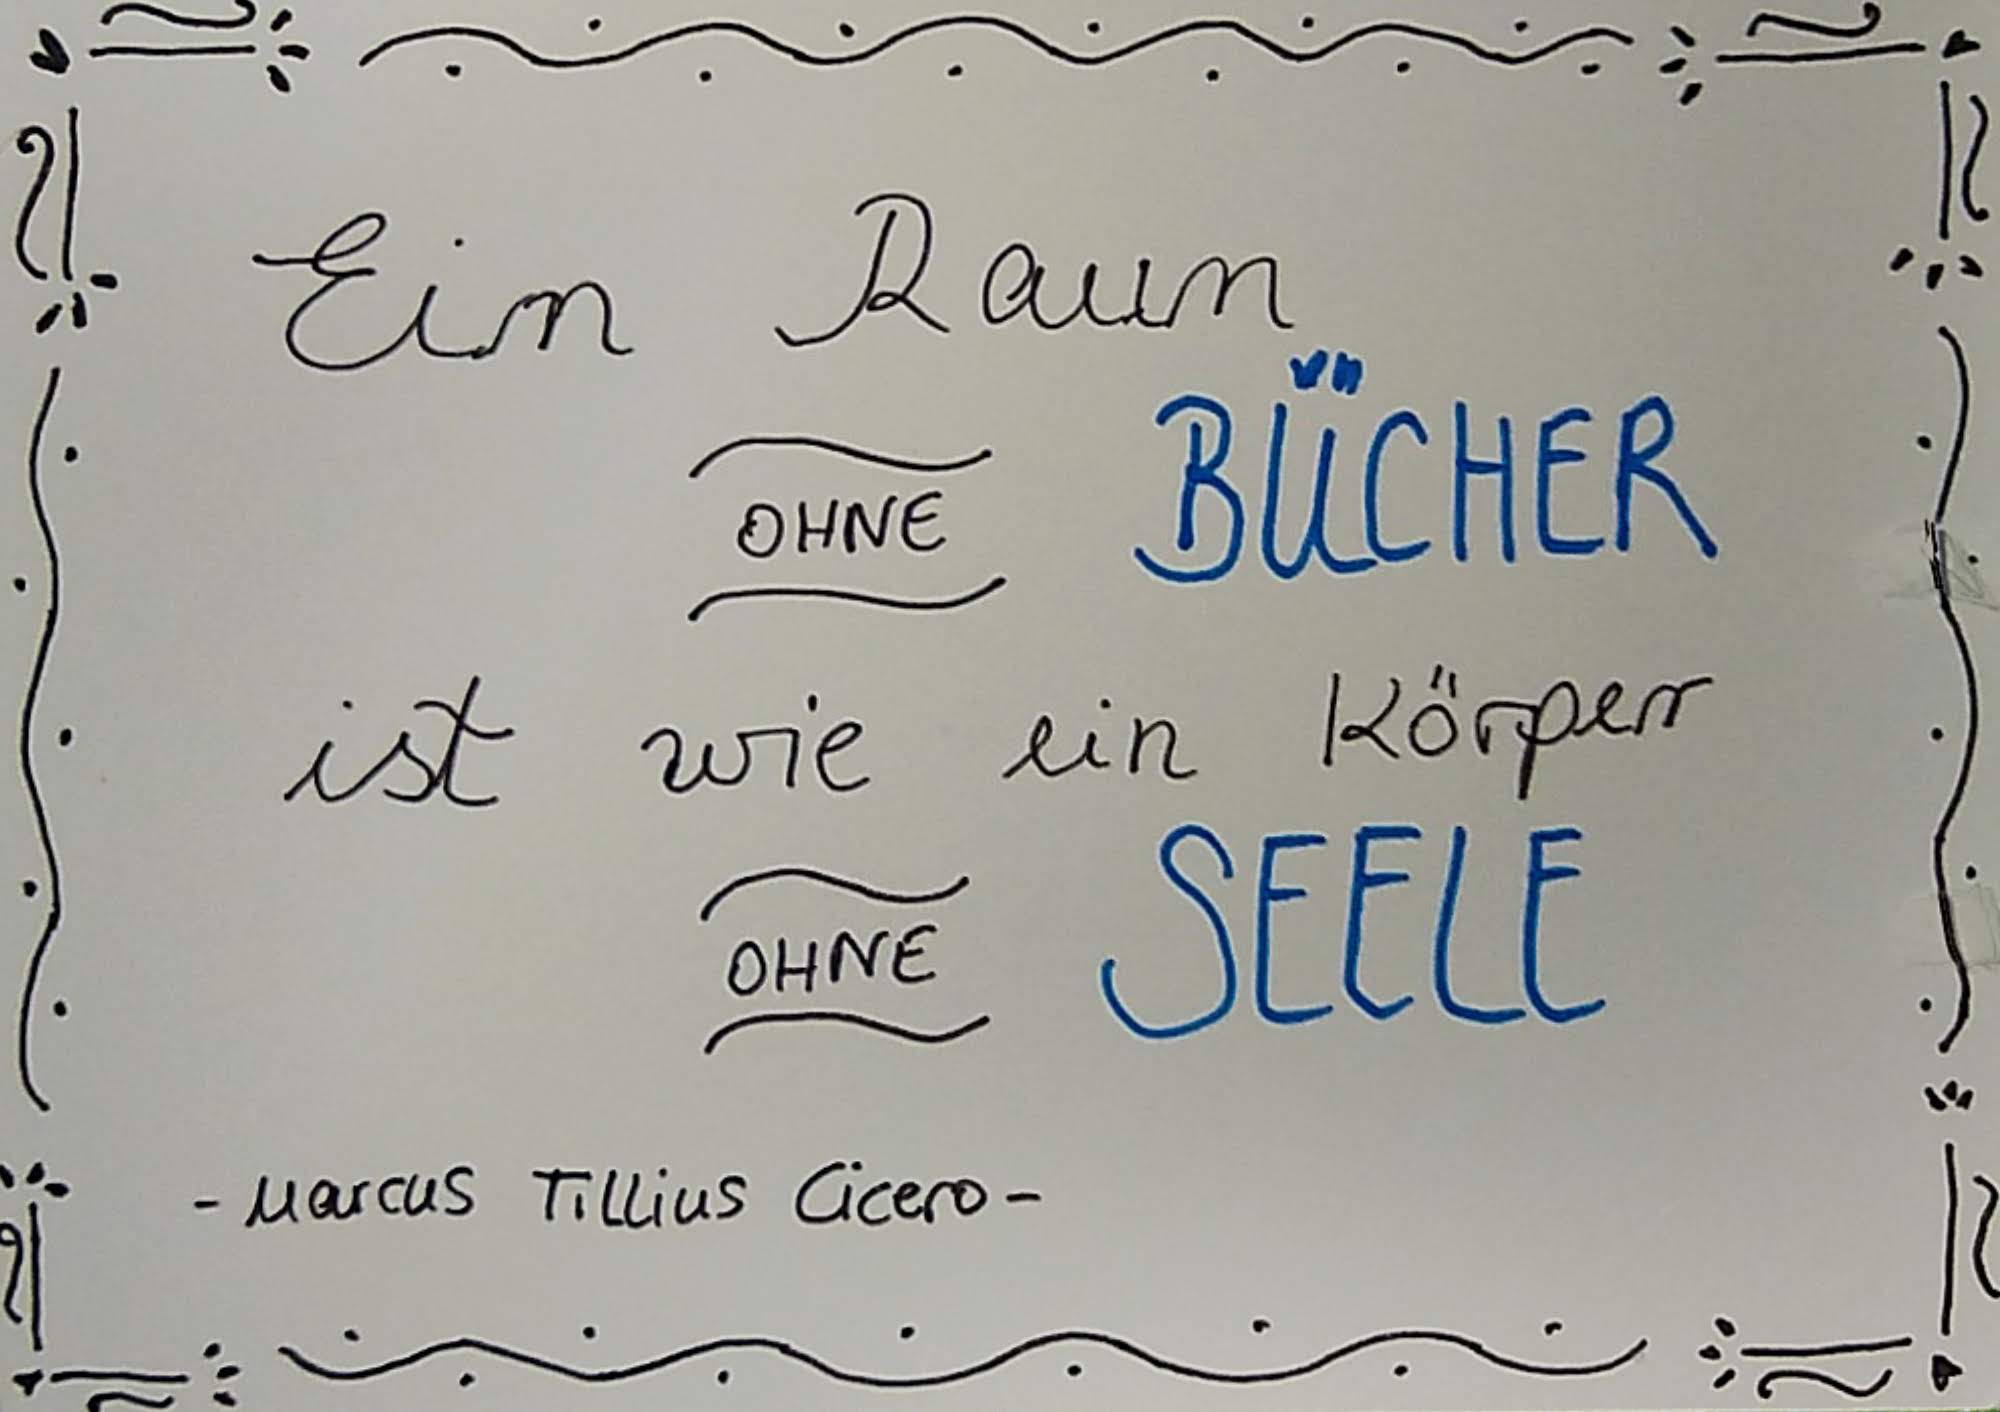 Ein Raum
OHNE BÜCHER
ist wie ein Körper
OHNE SEELE
- Marcus Tillius Cicero -